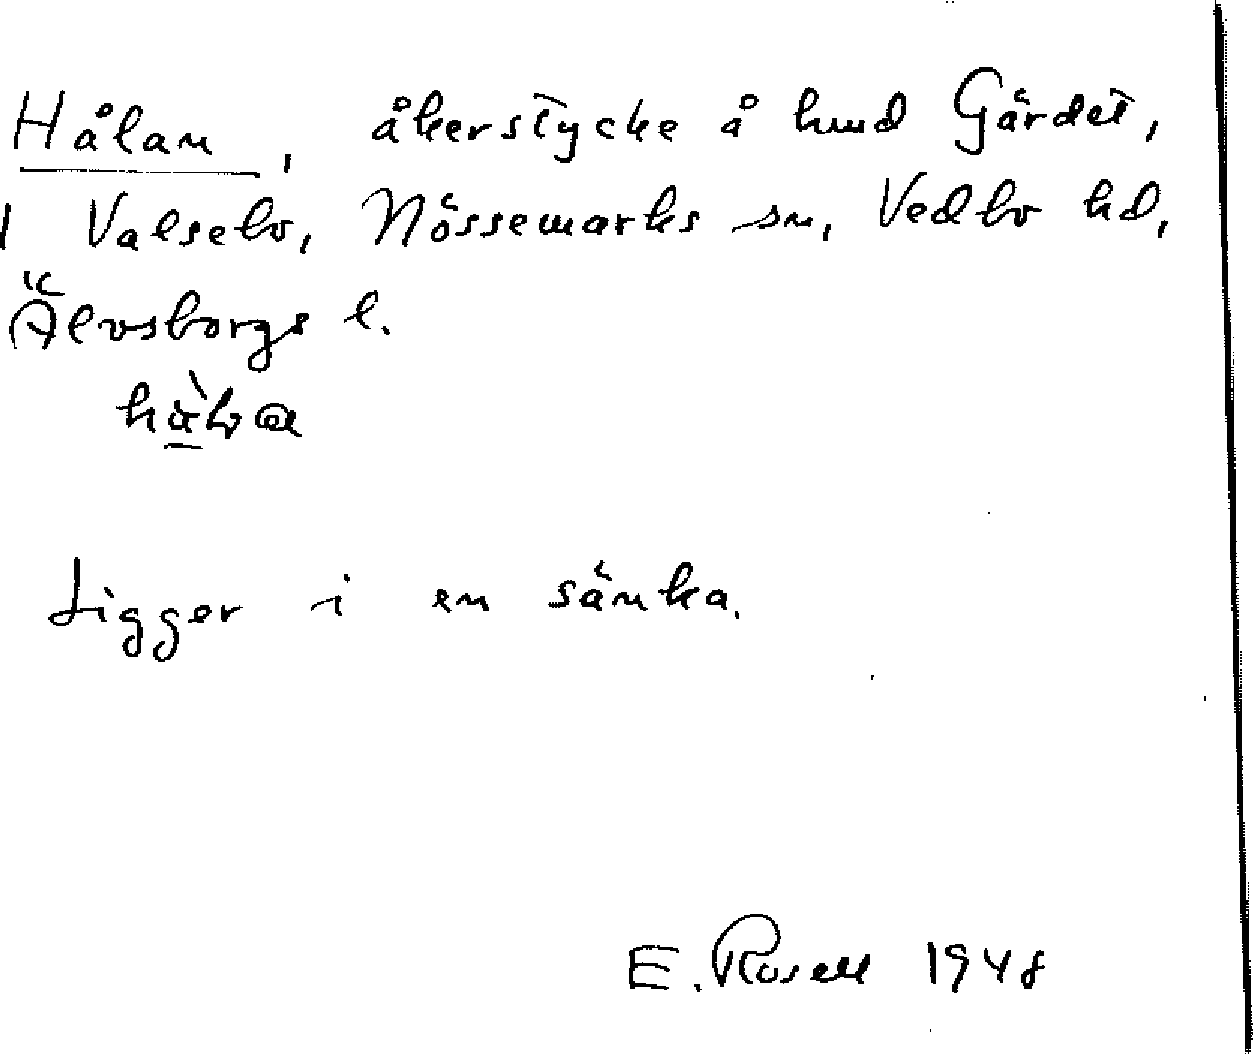 Hålan, åkerstycke å hmd Gärdet,
1 Valsebo, Nössemarks sn, Vedbo hd,
Älvsborgs l.
Ligger i en sänka.
E. Rosell 1948